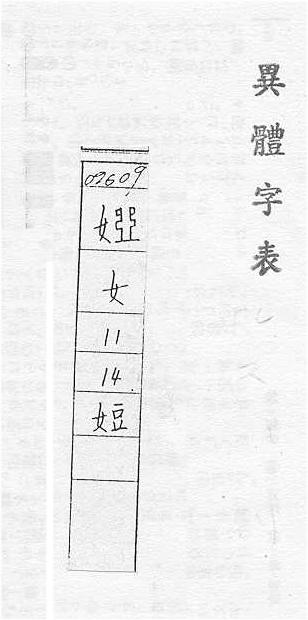 異體字表
09609
女
11
14